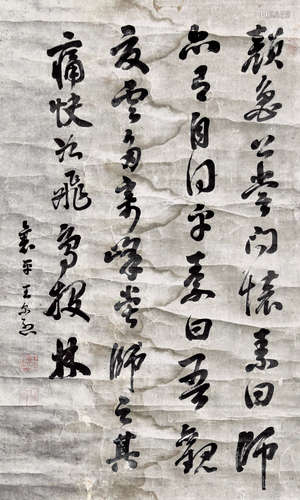 顏魯公嘗问懷素曰師
亦有自得乎素曰吾觀
夏雲多奇峰嘗師之其
痛快如飛鳥投林
襄平王